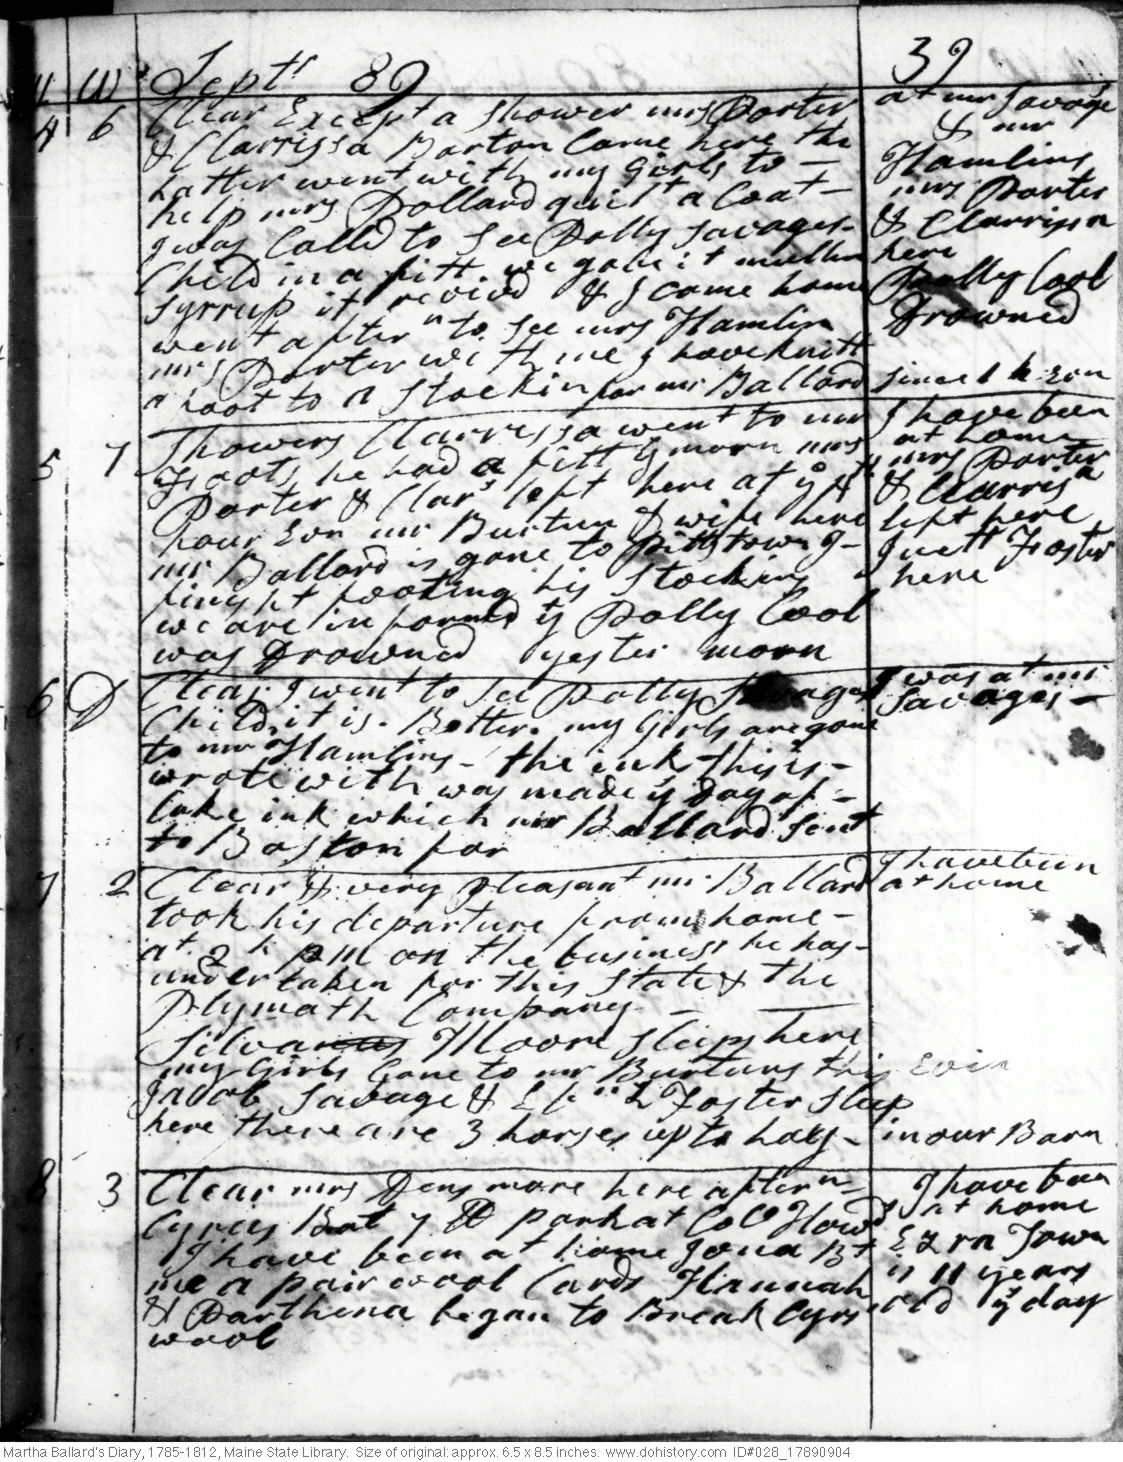 Sept^r 89
39
4 6 Clear Except a shower mrs Porter
& Clarrissa Barton Came here the
latter went with my girls to -
help mrs Pollard quilt a Coat -
I was Calld to see Polly Savages -
Child in a fitt. we gave it mullin
syrrup it revivd & I came home
went after^n to see mrs Hamlin
mrs Porter with me I have knitt
a foot to a Stockin for mr Ballard
at mr Savage
& mr
Hamlins
mrs Porter
& Clarrissa
here
Polly Cool
Drowned
since 1 h Evn
5 7 Showers Clarrissa went to mr
Foots, he had a fitt y morn mrs
Porter & Clar^s left here at y^e 4^th
hour Evn mr Burtun & wife here
mr Ballard is gone to Pittstown I -
finisht footing his Stockins
we are informd yt Polly Cool
was Drowned yester morn
I have been
at home
mrs Porter
& Clarrisa
left here
Juett Foster
here
6 D Clear I went to see Polly Savages
Child, it is. Better. my Girls are gone
to mr Hamlins - the ink this is -
wrote with was made ys day of -
Cake ink which mr Ballard sent
to Boston for
I was at mr
Savages -
7 2 Clear & very pleasant mr Ballard
took his departure from home -
at 2 h pm on the business he has -
undertaken for this State & the
Plymoth Company -
Silvanus Moore sleeps here
my Girls Gone to mr Burtuns this Evin
Jacob Savage & Foster sleep
here there are 3 horses up to hay - in our Barn
I have been
at home
8 3 Clear mrs Densmore here aftern^n
Cyrus Bot 7 lb pork at Col^o Howd^s
I have been at home Jona B^t
me a pair wool Cards Hannah
& Parthena began to Break Cyrs
wool
I have been
at home
Ezra Town
is 11 years
old y^s day
Martha Ballard's Diary, 1785-1812, Maine State Library. Size of original: approx. 6.5 x 8.5 inches. www.dohistory.com ID#028_17890904